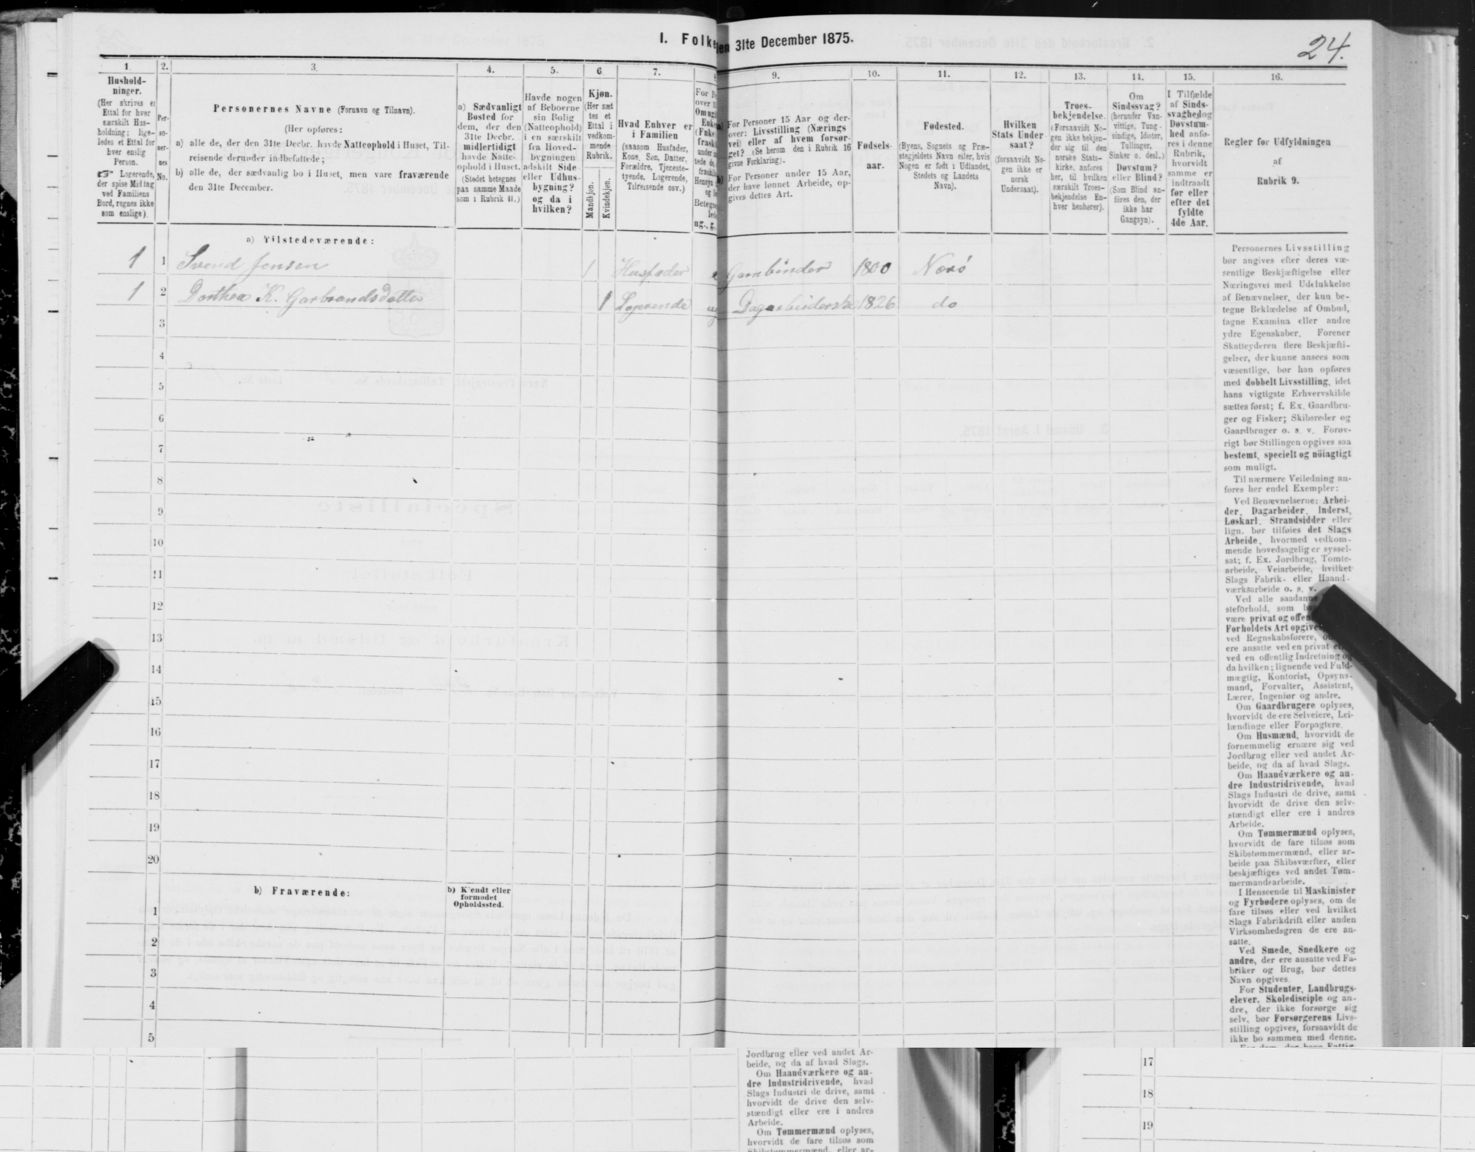 I. Folke
den 31te December 1875.
24.
1.
2.
3.
4.
5.
6.
7.
9.
10.
11.
12.
13.
14.
15.
16.
Hushold-
ninger.
(Her skrives et
Ettal for hver
særskilt Hus-
holdning; lige-
ledes et Ettal for
hver enslig
Person.
☞ Logerende,
der spise Middag
ved Familiens
Bord, regnes ikke
som enslige).
Per-
so-
ner-
nes
No.
Personernes Navne (Fornavn og Tilnavn).
(Her opføres:
a) alle de, der den 31te Decbr. havde Natteophold i Huset, Til-
reisende derunder indbefattede;
b) alle de, der sædvanlig bo i Huset, men vare fraværende
den 31te December.
a) Sædvanligt
Bosted for
dem, der den
31te Decbr.
midlertidigt
havde Natte-
ophold i Huset.
(Stedet betegnes
paa samme Maade
som i Rubrik 11.)
Havde nogen
af Beboerne
sin Bolig
(Natteophold)
i en særskilt
fra Hoved-
bygningen
adskilt Side-
eller Udhus-
bygning?
og da i
hvilken?
Kjøn.
(Her sæt-
tes et
Ettal i
vedkom-
mende
Rubrik.
Mandkjøn.
Kvindekjøn.
Hvad Enhver er
i Familien
(saasom Husfader,
Kone, Søn, Datter,
Forældre, Tjeneste-
tyende, Logerende,
Tilreisende osv.)
For Personer 15 Aar og der-
over: Livsstilling (Nærings
vei) eller af hvem forsør-
get? (Se herom den i Rubrik 16
givne Forklaring).
For Personer under 15 Aar,
der have lønnet Arbeide, op-
gives dettes Art.
Fødsels-
aar.
Fødested.
(Byens, Sognets og Præ-
stegjeldets Navn eller, hvis
Nogen er født i Udlandet,
Stedets og Landets
Navn).
Hvilken
Stats Under
saat?
(forsaavidt No-
gen ikke er
norsk
Undersaat).
Troes-
bekjendelse.
(Forsaavidt No-
gen ikke bekjen-
der sig til den
norske Stats-
kirke, anføres
her, til hvilken
særskilt Troes-
bekjendelse En-
hver henhører).
Om
Sindssvag?
(herunder Van-
vittige, Tung-
sindige, Idioter,
Tullinger,
Sinker o. desl.)
Døvstum?
eller Blind?
(Som Blind an-
føres den, der
ikke har
Gangsyn).
I Tilfælde
af Sinds-
svaghed og
Døvstum-
hed anfø-
res i denne
Rubrik,
hvorvidt
samme er
indtraadt
før eller
efter det
fyldte
4de Aar.
Regler for Udfyldningen
af
Rubrik 9.
a) Tilstedeværende:
1 1 Svend Jensen 1 Husfader Garnbinder 1800 Nærø
1 2 Dorthea K. Garbrandsdatter 1 Logerende ug 1826 do
3
4
5
6
7
8
9
10
11
12
13
14
15
16
17
18
19
20
b) Fraværende:
b) Kjendt eller
formodet
Opholdssted.
1
2
3
4
5
Personernes Livsstilling
bør angives efter deres væ-
sentlige Beskjæftigelse eller
Næringsvei med Udelukkelse
af Benævnelser, der kun be-
tegne Beklædelse af Ombud,
tagne Examina eller andre
ydre Egenskaber. Forener
Skatteyderen flere Beskjæfti-
gelser, der kunne ansees som
væsentlige, bør han opføres
med dobbelt Livsstilling, idet
hans vigtigste Erhvervskilde
sættes først; f. Ex. Gaardbru-
ger og Fisker; Skibsreder og
Gaardbruger o. s. v. Forøv-
rigt bør Stillingen opgives saa
bestemt, specielt og nöiagtigt
som muligt.
Til nærmere Veiledning an-
føres her endel Exempler:
Ved Benævnelserne: Arbei-
der, Dagarbeider, Inderst,
Løskarl, Strandsidder eller
lign. bør tilføies det Slags
Arbeide, hvormed vedkom-
mende hovedsagelig er syssel-
sat; f. Ex. Jordbrug, Tomte-
arbeide, Veiarbeide, hvilket
Slags Fabrik- eller Haand-
værksarbeide o. s. v.
Ved alle saadanne
steforhold, som
være privat og offen
Forholdets Art opgives
ved Regnskabsførere,
ere ansatte ved en privat
ved en offentlig Indretning og
da hvilken; lignende ved Fuld-
mægtig, Kontorist, Opsyns-
mand, Forvalter, Assistent,
Lærer, Ingeniør og andre.
Om Gaardbrugere oplyses,
hvorvidt de ere Selveiere, Lei-
lændinge eller Forpagtere.
Om Husmænd, hvorvidt de
fornemmelig ernære sig ved
Jordbrug eller ved andet Ar-
beide, og da af hvad Slags.
Om Haandværkere og an-
dre Industridrivende, hvad
Slags Industri de drive, samt
hvorvidt de drive den selv-
stændigt eller ere i andres
Arbeide.
Om Tømmermænd oplyses,
hvorvidt de fare tilsøs som
Skibstømmermænd, eller ar-
beide paa Skibsværfter, eller
beskjæftiges ved andet Tøm-
mermandsarbeide.
I Henseende til Maskinister
og Fyrbødere oplyses, om de
fare tilsøs eller ved hvilket
Slags Fabrikdrift eller anden
Virksomhedsgren de ere an-
satte.
Ved Smede, Snedkere og
andre, der ere ansatte ved Fa-
briker og Brug, bør dettes
Navn opgives.
For Studenter, Landbrugs-
elever, Skoledisciple og an-
dre, der ikke forsørge sig
selv, bør Forsørgerens Livs-
stilling opgives, forsaavidt de
ikke bo sammen med denne.
Jordbrug eller ved andet Ar-
beide, og da af hvad Slags.
Om Haandværkere og an-
dre Industridrivende, hvad
Slags Industri de drive, samt
hvorvidt de drive den selv-
stændigt eller ere i andres
Arbeide.
Om Tømmermænd oplyses,
hvorvidt de fare tilsøs som
17
18
19